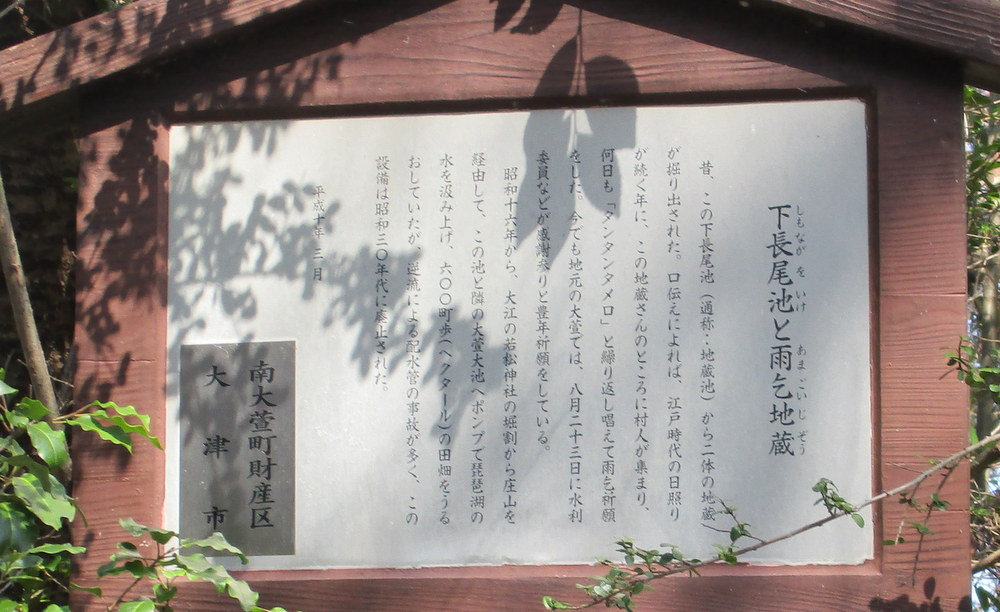 下長尾池と雨乞地蔵
しもながをいけ あまごいじぞう
昔、この下長尾池（通称・地蔵池）から二体の地蔵
が掘り出された。口伝えによれば、江戸時代の日照り
が続く年に、この地蔵さんのところに村人が集まり、
何日も「タンタンタメロ」と繰り返し唱えて雨乞祈願
をした。今でも地元の大萱では、八月二十三日に水利
委員などが感謝参りと豊年祈願をしている。
昭和十六年から、大江の若松神社の堀割から庄山を
経由して、この池と隣の大萱大池へポンプで琵琶湖の
水を汲み上げ、六〇〇町歩（ヘクタール）の田畑をうる
おしていたが、逆流による配水管の事故が多く、この
設備は昭和三〇年代に廃止された。
平成十年 三月
南大萱町財産区
大津市